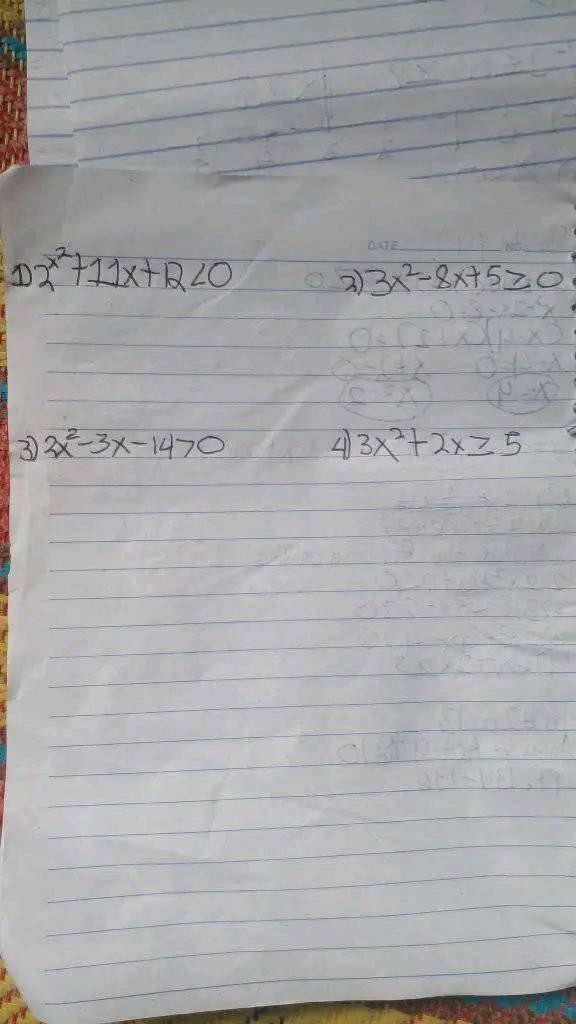 DATE NO.
1) 2x²+11x+12<0 2) 3x²-8x+5≥0
3) 2x²-3x-14>0 4) 3x²+2x≥5